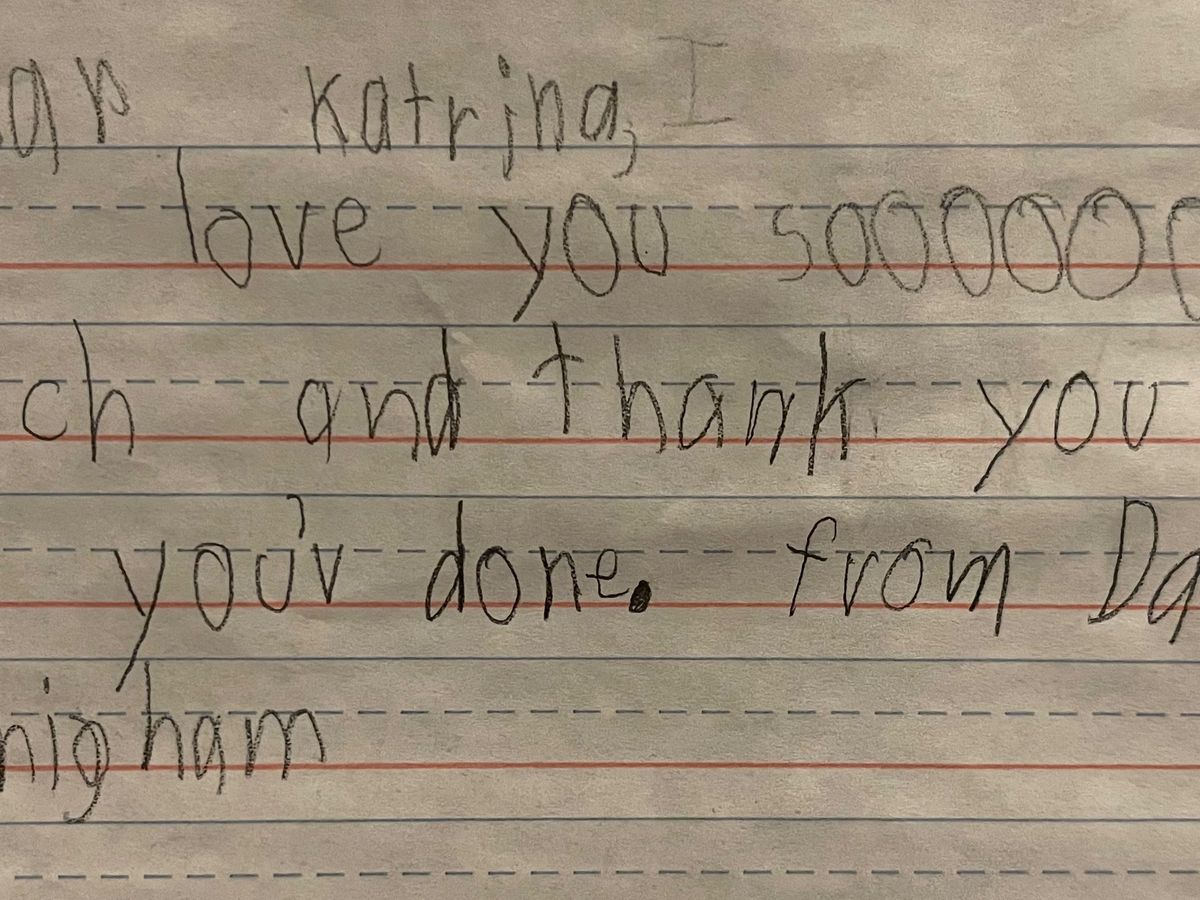 ar Katrina, I
love you soooooo
ch and thank you
you'v done. from Da
nigham